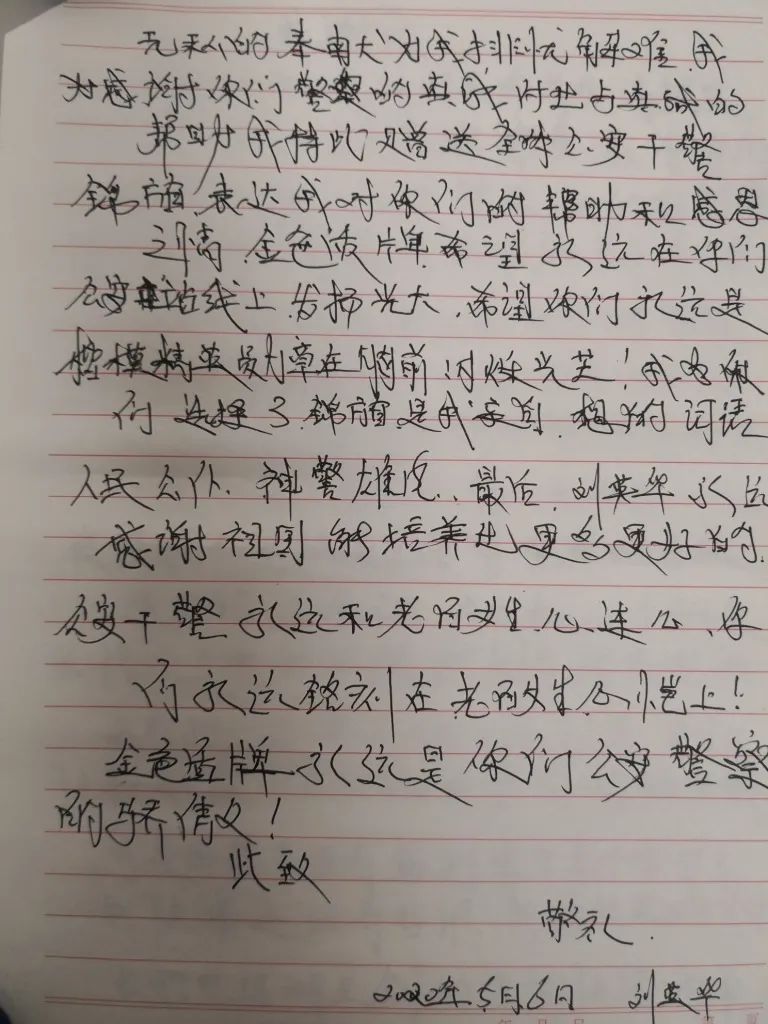 无私的奉献 为我排忧解难,我
为感谢你们警察的真诚付出与真诚的
帮助 我特此 赠送 全体公安干警
锦旗,表达我对你们的帮助和感恩
之情 金色盾牌,希望永远在你们
公安 战线上,发扬光大,希望你们永远是
楷模 精英 勋章在胸前闪烁光芒!我
们 选择了 锦旗是我 想 的词语
人民公仆、神警雄 、最后,刘英华永远
感谢祖国 能培养出更多更好的,
公安干警永远和老百姓心连心,你
们永远铭刻在老百姓心 上!
金色盾牌永远是你们公安警察
的骄 !
此致
敬礼.
2020年5月6日 刘英华